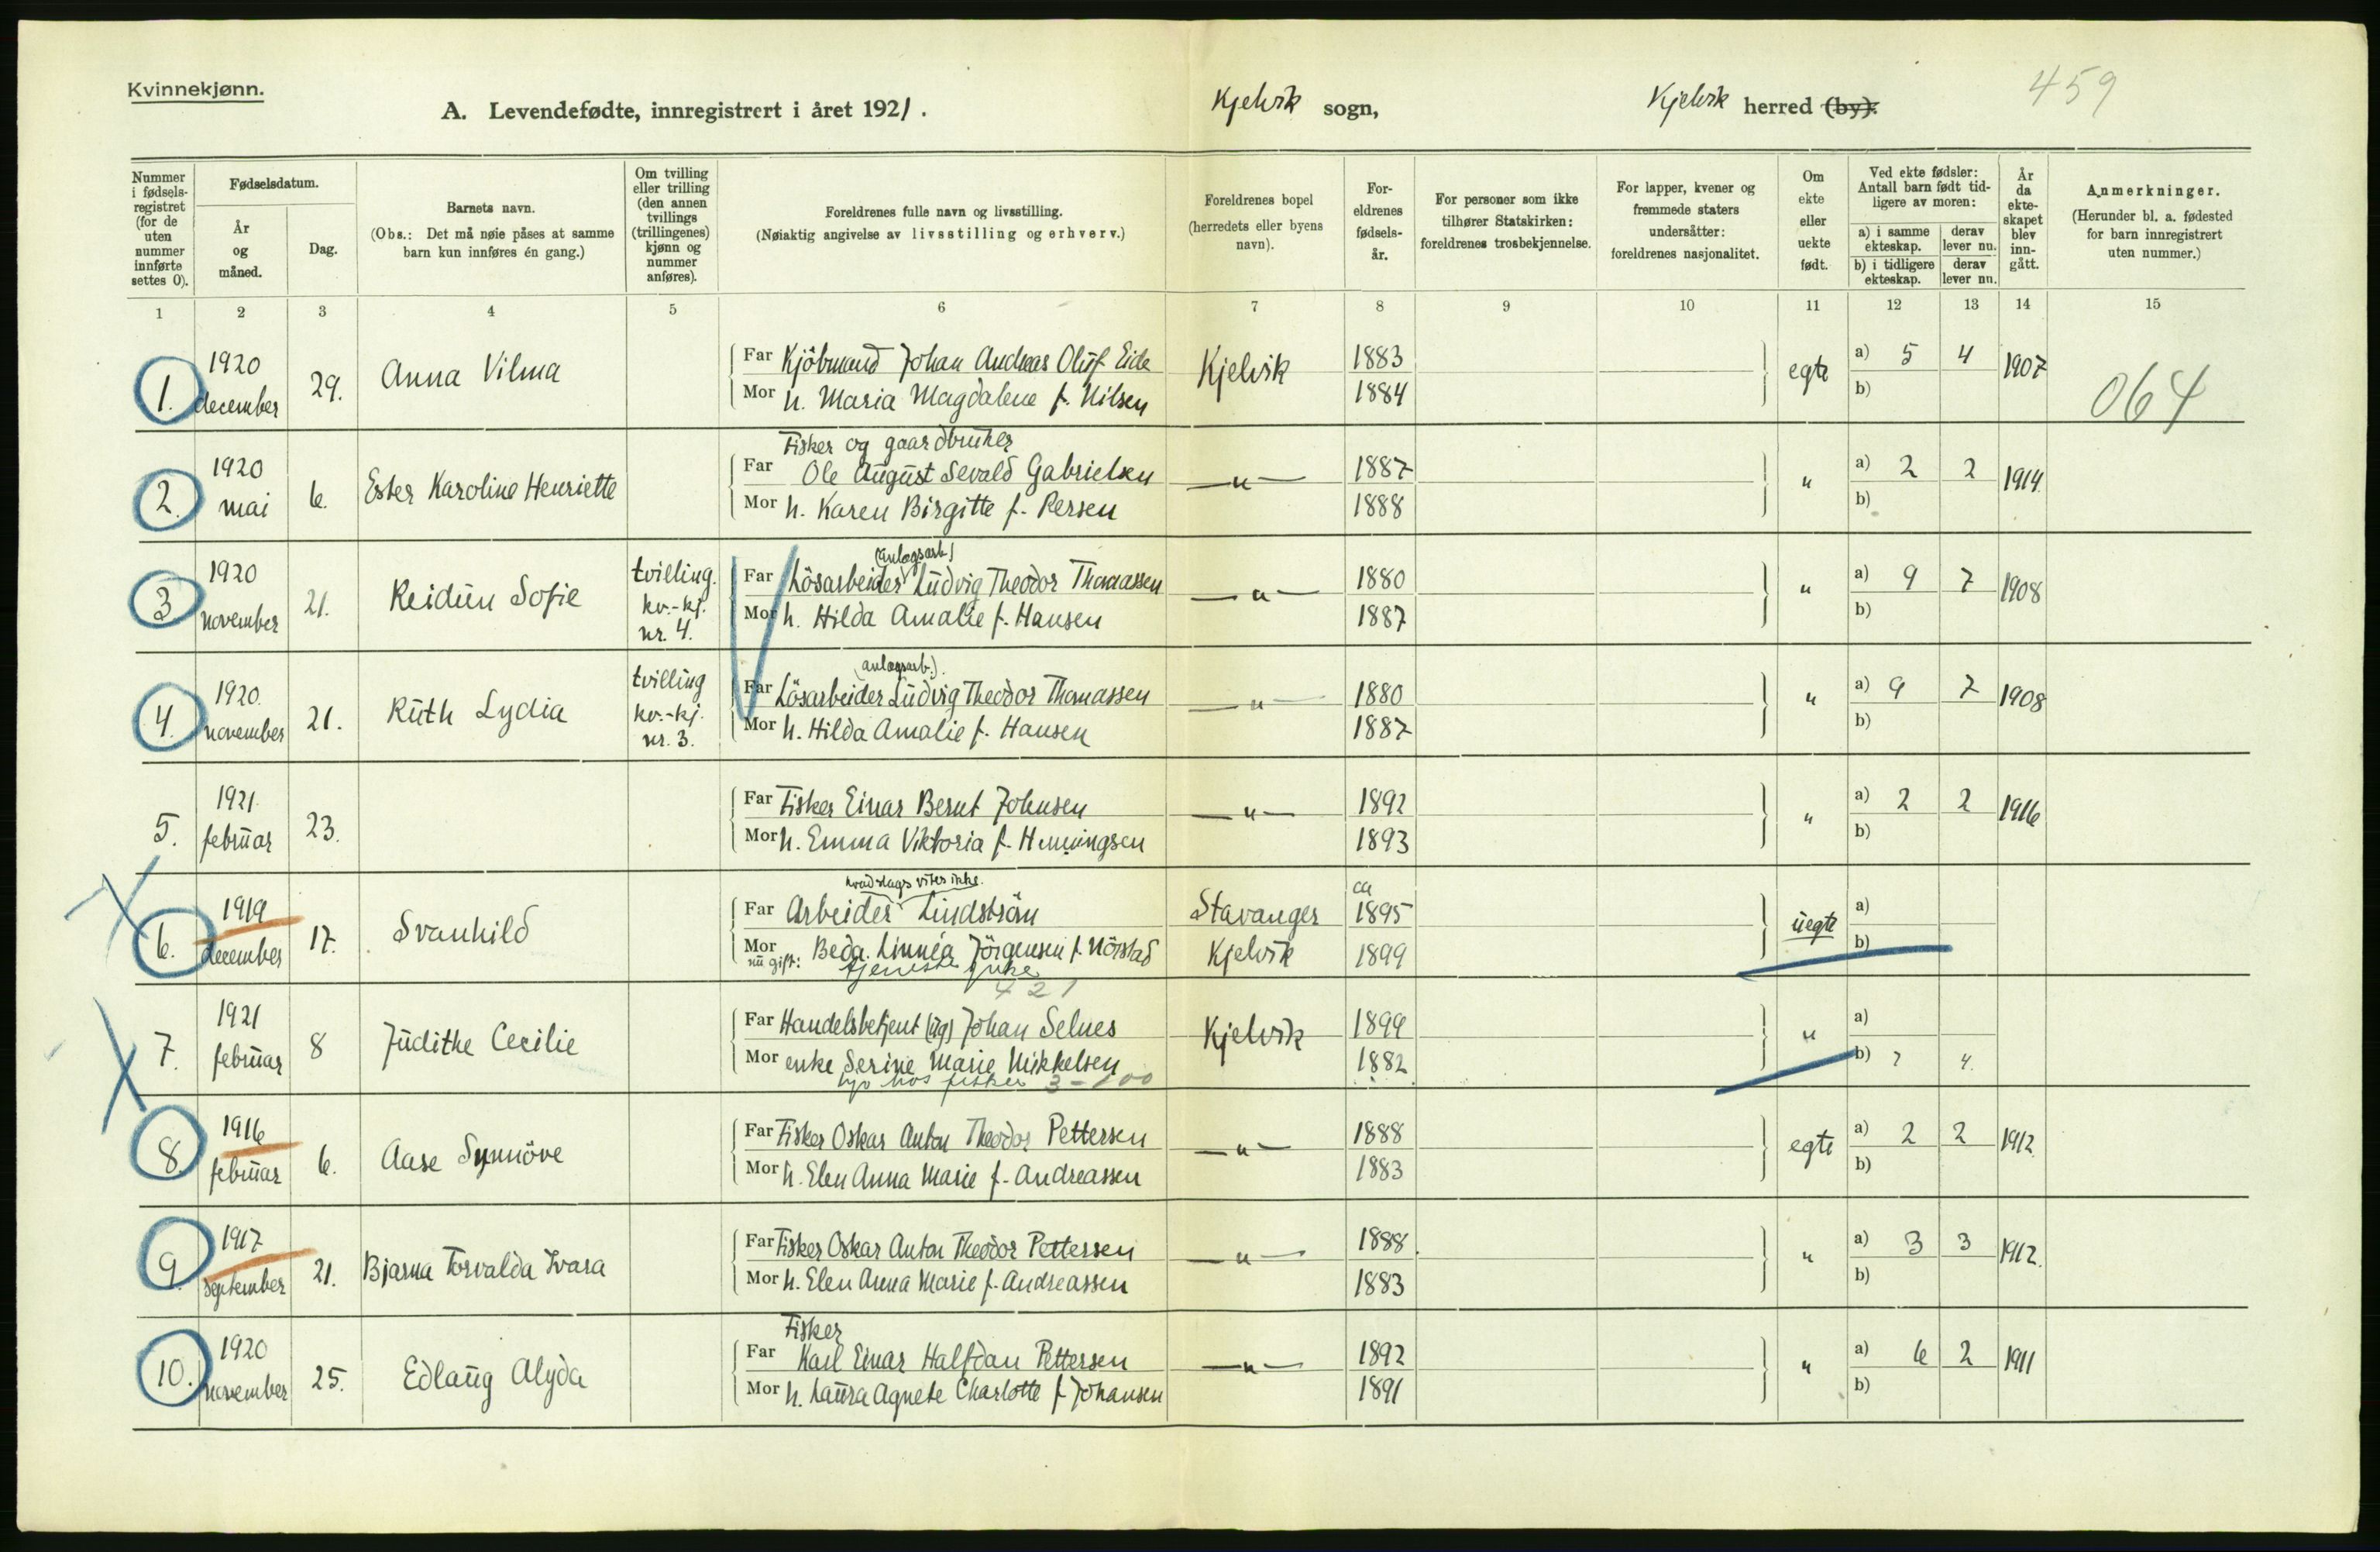 Kvinnekjønn.
A. Levendefødte, innregistrert i året 1921.
Kjelvik sogn,
Kjelvik herred (by).
459
Nummer i fødsels-registret (for de uten nummer innførte settes 0).
Fødselsdatum.
År og måned.
Dag.
Barnets navn.
(Obs.: Det må nøie påses at samme barn kun innføres én gang.)
Om tvilling eller trilling (den annen tvillings (trillingenes) kjønn og nummer anføres).
Foreldrenes fulle navn og livsstilling.
(Nøiaktig angivelse av livsstilling og erhverv.)
Foreldrenes bopel (herredets eller byens navn).
For-eldrenes fødsels-år.
For personer som ikke tilhører Statskirken: foreldrenes trosbekjennelse.
For lapper, kvener og fremmede staters undersåtter: foreldrenes nasjonalitet.
Om ekte eller uekte født.
Ved ekte fødsler: Antall barn født tid-ligere av moren:
a) i samme ekteskap.
derav lever nu.
b) i tidligere ekteskap.
derav lever nu.
År da ekte-skapet blev inn-gått.
Anmerkninger.
(Herunder bl. a. fødested for barn innregistrert uten nummer.)
1 2 3 4 5 6 7 8 9 10 11 12 13 14 15
1. 1920 december 29. Anna Vilma
Far Kjöbmand Johan Andreas Oluf Eide Kjelvik 1883 egte a) 5 4 1907
Mor h. Maria Magdalene f. Nilsen 1884 b)
064
2. 1920 mai 6. Ester Karoline Henriette
Fisker og gaardbruker
Far Ole August Sevald Gabrielsen —"— 1887 " a) 2 2 1914.
Mor h. Karen Birgitte f. Persen 1888 b)
3 1920 november 21. Reidun Sofie tvilling. kv.-kj. nr. 4.
(anlægsarb.)
Far Lösarbeider Ludvig Theodor Thomassen —"— 1880 " a) 9 7 1908
Mor h. Hilda Amalie f. Hansen 1887 b)
4. 1920. november 21. Ruth Lydia tvilling kv.-kj. nr. 3.
(anlægsarb.).
Far Lösarbeider Ludvig Theodor Thomassen —"— 1880 " a) 9 7 1908
Mor h. Hilda Amalie f. Hansen 1887 b)
5. 1921. februar 23.
Far Fisker Einar Bernt Johnsen —"— 1892 " a) 2 2 1916
Mor h. Emma Viktoria f. Henningsen 1893 b)
6. 1919 december 17. Svanhild
hvad slags vites ikke.
Far Arbeider Lindström Stavanger ca 1895 uegte a)
Mor nu gift: Beda Linnéa Jörgensen f. Nörstad Kjelvik 1899 b)
tjeneste pike
421
7. 1921 februar 8 Judithe Cecilie
Far Handelsbetjent (ug) Johan Selnes Kjelvik 1899 " a)
Mor enke Serine Marie Mikkelsen 1882 b) 7 4.
hjo hos fisker 3-100
8. 1916 februar 6. Aase Synnöve
Far Fisker Oskar Anton Theodor Pettersen —"— 1888 egte a) 2 2 1912
Mor h. Elen Anna Marie f. Andreassen 1883 b)
9. 1917 september 21. Bjarna Torvalda Ivara
Far Fisker Oskar Anton Theodor Pettersen —"— 1888. " a) 3 3 1912.
Mor h. Elen Anna Marie f. Andreassen 1883 b)
10. 1920 november 25. Edlaug Alyda
Fisker
Far Karl Einar Halfdan Pettersen —"— 1892 " a) 6 2 1911
Mor h. Laura Agnete Charlotte f Johansen 1891 b)